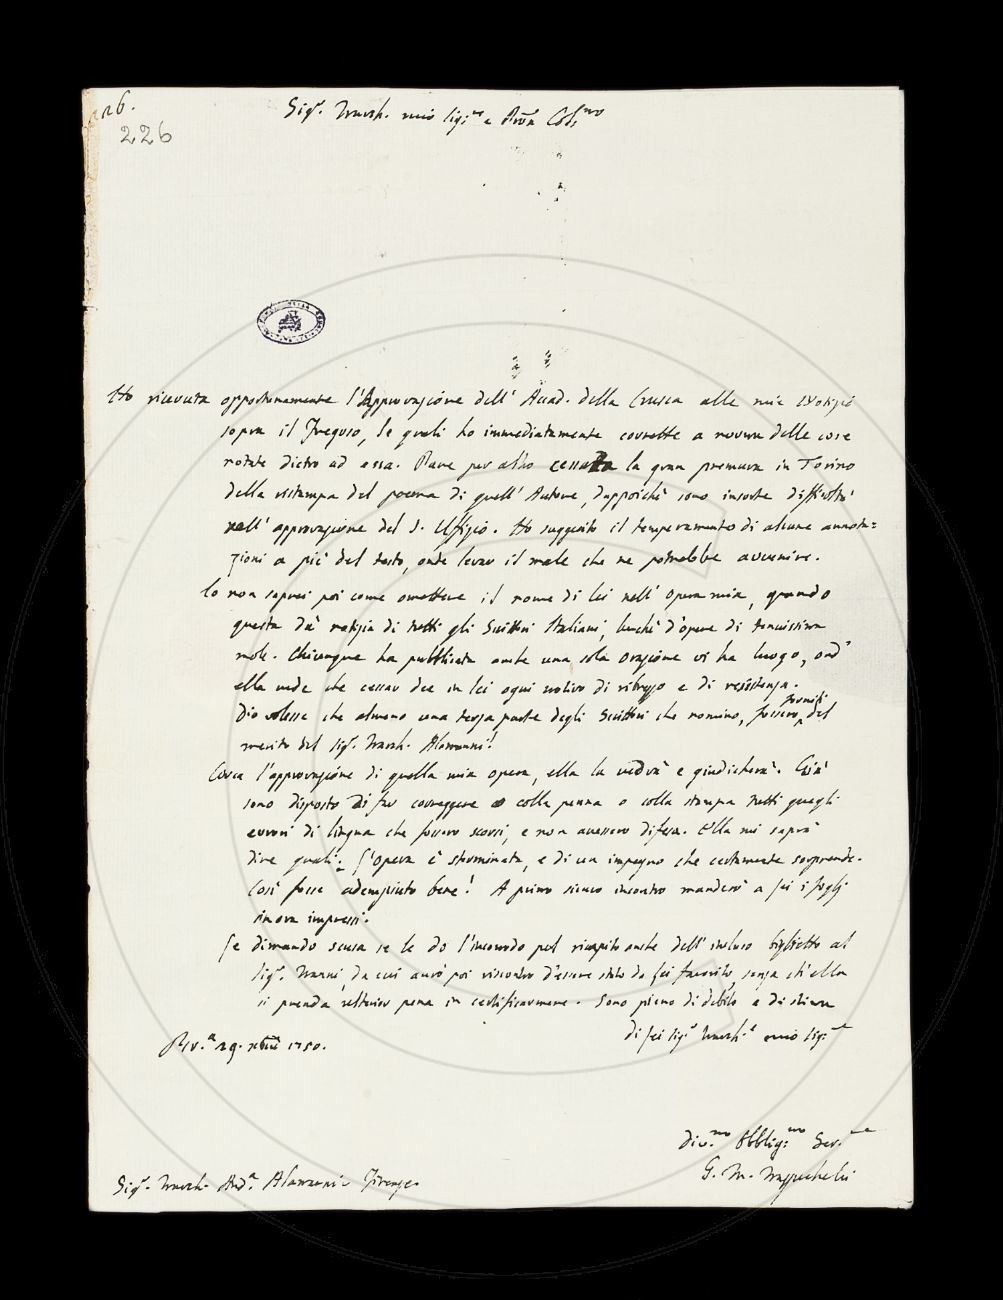 226.
226
Sig.r March. mio Sig.re e Pron Col.mo
Ho ricevuta opportunamente l'Approvazione dell' Accad. della Crusca alle mie Notizie
sopra il Fregoso, le quali ho immediatamente corrette a norma delle cose
notate dietro ad essa. Pare per altro cessata la gran premura in Torino
della ristampa del poema di quell' Autore, dappoichè sono insorte difficoltà
nell' approvazione del S. Uffizio. Ho suggerito il temperamento di alcune annota=
zioni a piè del testo, onde levar il male che ne potrebbe avvenire.
Io non saprei poi come omettere il nome di lei nell' Opera mia, quando
questa dà notizia di tutti gli Scrittori Italiani, benchè d'opere di tenuissima
mole. Chiunque ha pubblicata anche una sola Orazione vi ha luogo, ond'
ella vede che cessar dee in lei ogni motivo di ribrezzo e di resistenza.
Dio volesse che almeno una terza parte degli Scrittori che nomino, fossero forniti del
merito del Sig.r March. Alamanni!
Circa l'approvazione di quella mia opera, ella la vedrà e giudicherà. Già
sono disposto di far correggere o colla penna o colla stampa tutti quegli
errori di lingua che fossero scorsi, e non avessero difesa. Ella mi saprà
dire quali. L'opera è sterminata, e di un impegno che certamente sorprende.
Così fosse adempiuto bene! A primo sicuro incontro manderò a lei i fogli
sinora impressi.
Le dimando scusa se le do l'incomodo pel ricapito anche dell' incluso biglietto al
Sig.r Manni, da cui avrò poi riscontro d'essere stato da lei favorito, senza ch'ella
si prenda ulterior pena in certificarmene. Sono pieno di debito e di stima
di lei Sig.r March.e mio Sig.re
Riv.a 29. xbre 1750.
Div.mo Obblig.mo Ser.re
G. M. Mazzuchelli
Sig.r March. And.a Alamanni. Firenze